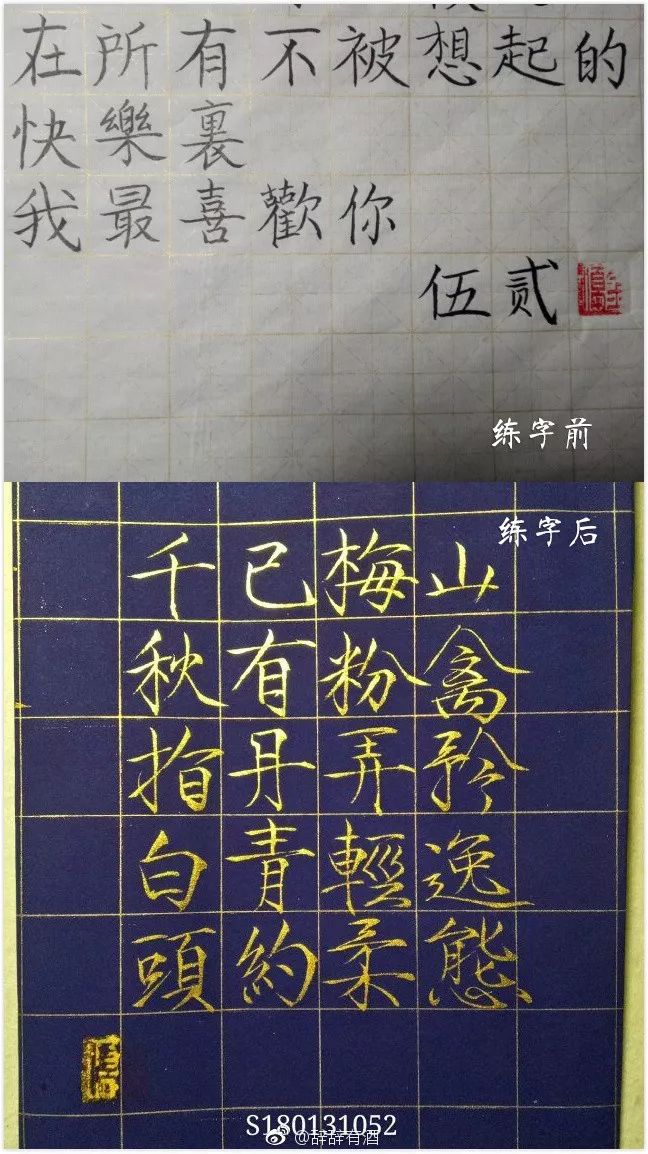 在所有不被想起的
快樂裏
我最喜歡你
伍贰
练字前
练字后
山禽矜逸態
梅粉弄輕柔
已有丹青約
千秋指白頭
S180131052
@辞辞有酒